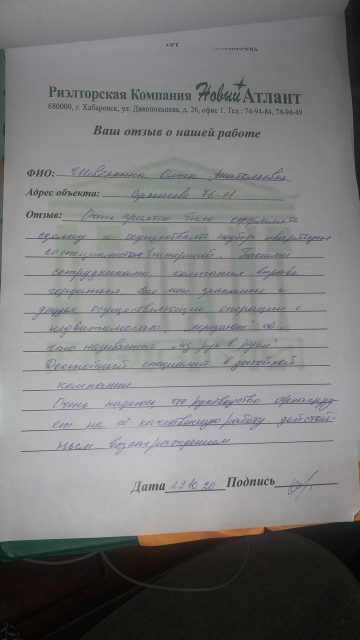 Риэлторская Компания Новый Атлант
680000, г. Хабаровск, ул. Дикопольцева, д. 26, офис 1. Тел.: 74-94-84, 74-94-49
Ваш отзыв о нашей работе
ФИО: Ольга Анатольевна
Адрес объекта: 46-11
Отзыв: Очень приятно было оформлять
сделку и осуществлять подбор квартиры
со специалистом Такими
сотрудниками компания вправе
гордиться. Все мои знакомые и
друзья, осуществляющие операции с
недвижимостью, её,
что называется "из рук в руки"
Достойный специалист в достойной
компании
Очень надеюсь что руководство отреагиру
ет на её качественную работу достой-
ным вознаграждением
Дата 29.10.20 Подпись